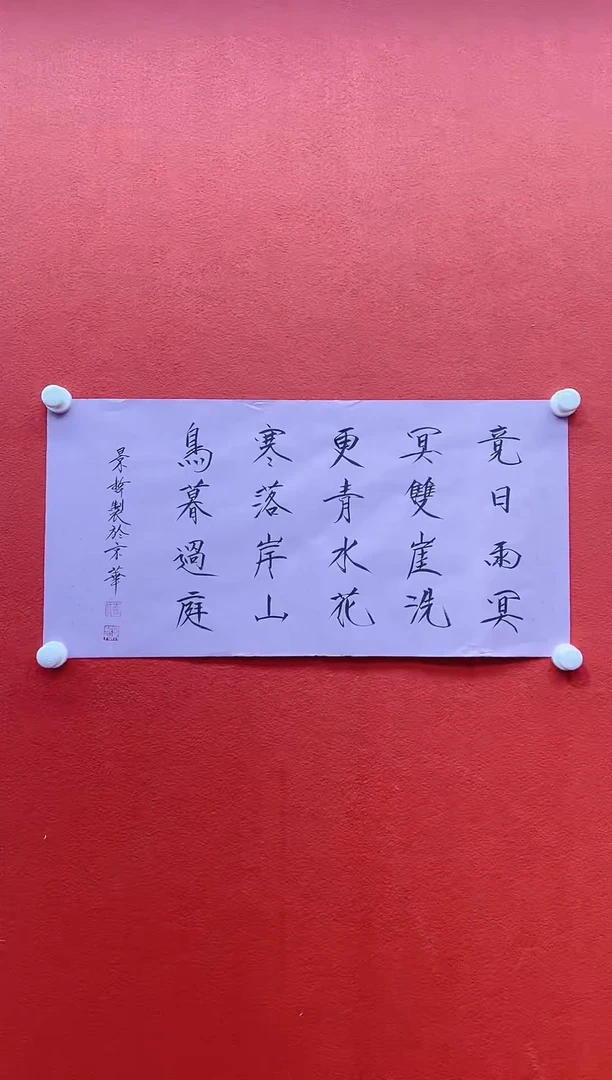 竟日雨冥
冥雙崖洗
更青水花
寒落岸山
鳥暮過庭
景 製於京華